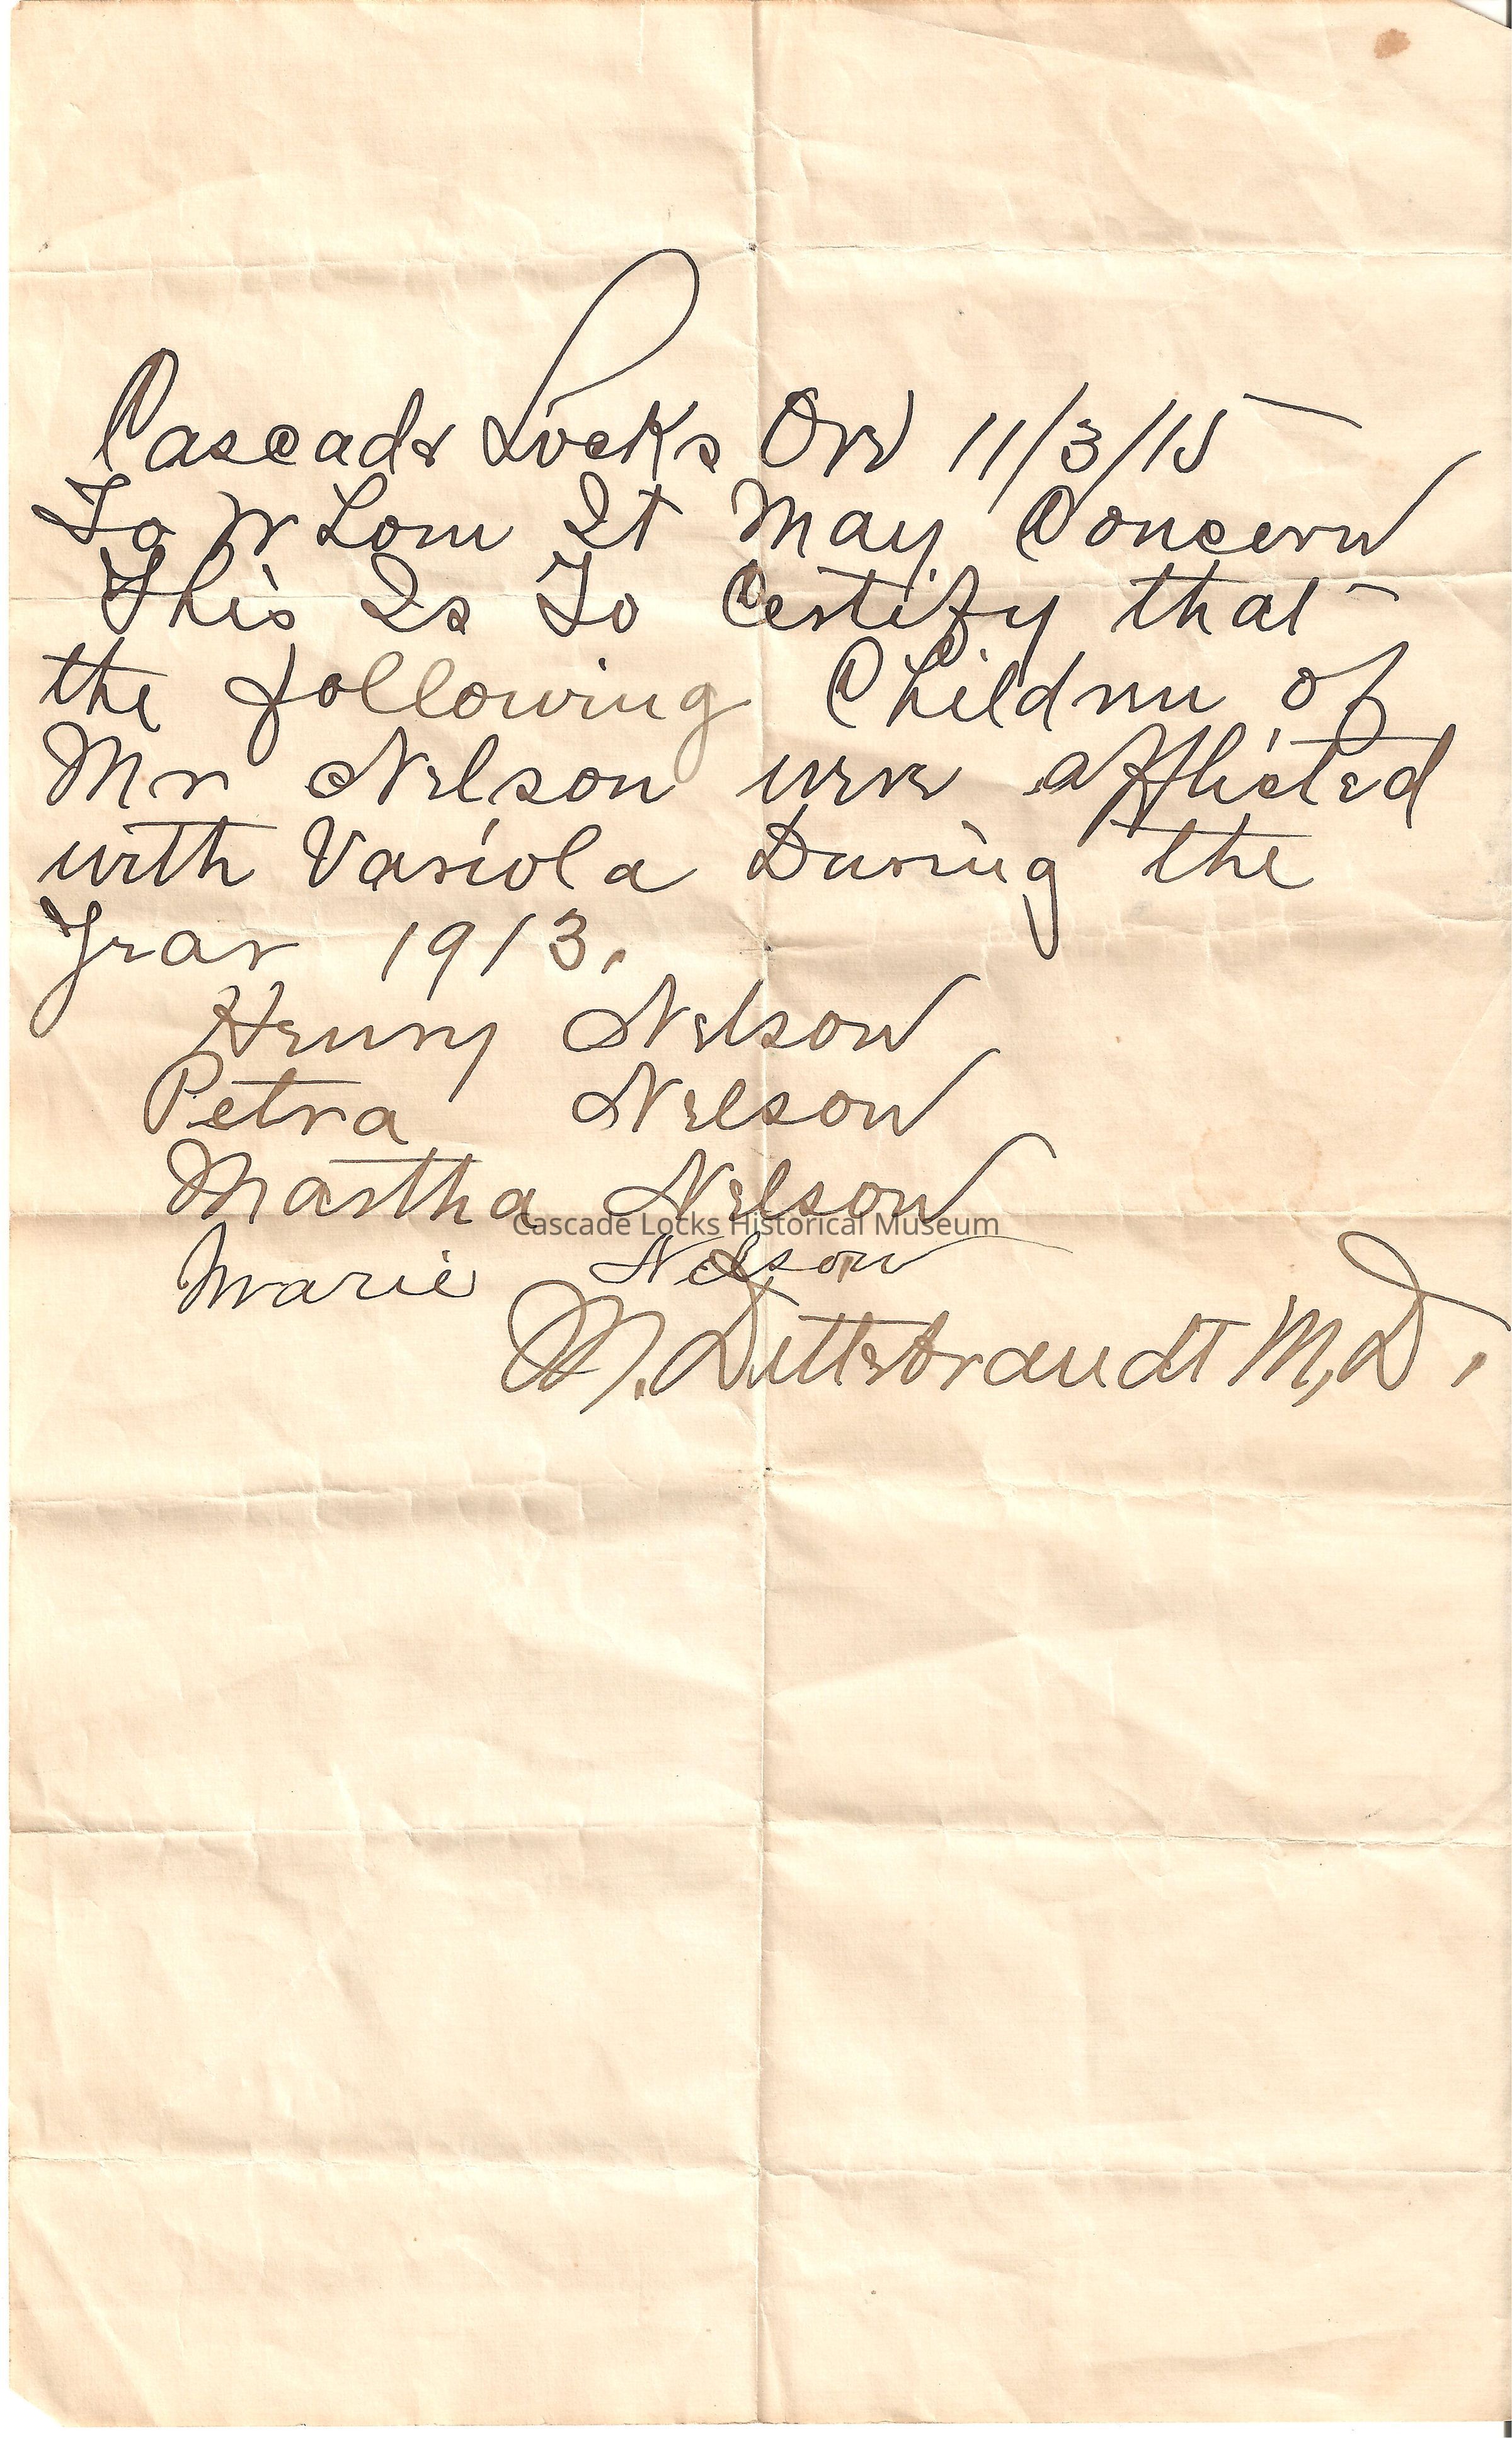 Cascade Locks Ore 11/3/15
To Whom It May Concern
This Is To Certify that
the following Children of
Mr Nelson were afflicted
with Variola During the
Year 1913.
Henry Nelson
Petra Nelson
Martha Nelson
Cascade Locks Historical Museum
Marie Nelson
M. Dittebrandt M.D.